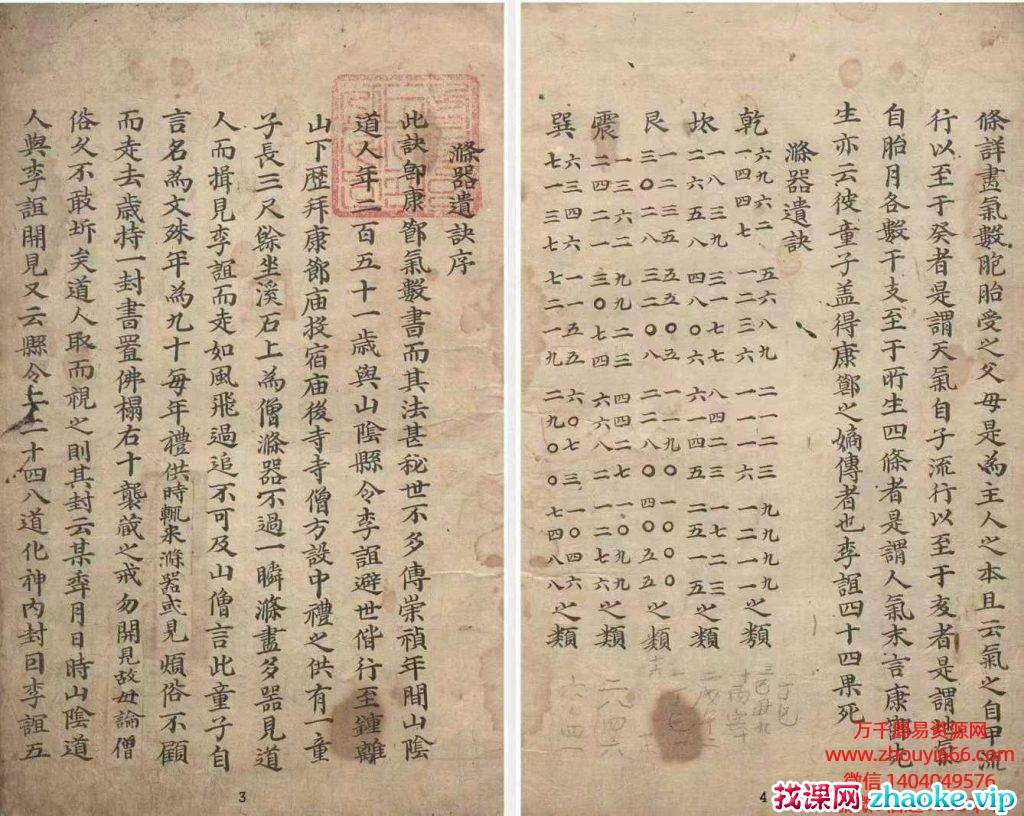 滌器遺訣序
此訣即康鄭氣數書而其法甚秘世不多傳崇禎年間山陰
道人年二百五十一歲與山陰縣令李誼避世偕行至鍾離
山下歷拜康節庙投宿庙後寺寺僧方設中禮之供有一童
子長三尺餘坐溪石上為僧滌器不過一瞬滌盡多器見道
人而揖見李誼而走如風飛過追不可及山僧言此童子自
言名為文殊年為九十每年禮供時輒来滌器或見煩俗不顧
而走去歲持一封書置佛榻右十襲蔵之戒勿開見故毋論僧
俗久不敢坼矣道人取而視之則其封云某年月日時山陰道
人與李誼開見又云縣令上二十四八道化神內封曰李誼五
3
條詳畫氣數胞胎受之父母是為主人之本且云氣之自甲流
行以至于癸者是謂天氣自子流行以至于亥者是謂地氣
自胎月各數干支至于所生四條者是謂人氣末言康
生亦云彼童子盖得康鄭之嫡傳者也李誼四十四果死
滌器遺訣
乾 六九六二 五六八九 二一二三 九九九九
一四四七 一二三六 一一一六 一二一一 之類
坎 一八三九 三一七七 八四二三 一七二三
二六五八 四八〇六 六一四五 二五一五 之類
艮 一二三五 五五〇〇 一一九〇 一〇〇〇
三〇二八 三二〇八 二二八〇 四〇五五 之類
震 一三六二 九九二三 四四二七 一〇九九
二四二一 三〇七四 六六八二 一二七六 之類
巽 六三四六 一一五五 六〇七三 一〇四六
七一三七 七二一九 二九〇〇 七四八八 之類
4
万千周易资源网
www.zhouyi666.com
微信 1404049576
找课网zhaoke.vip